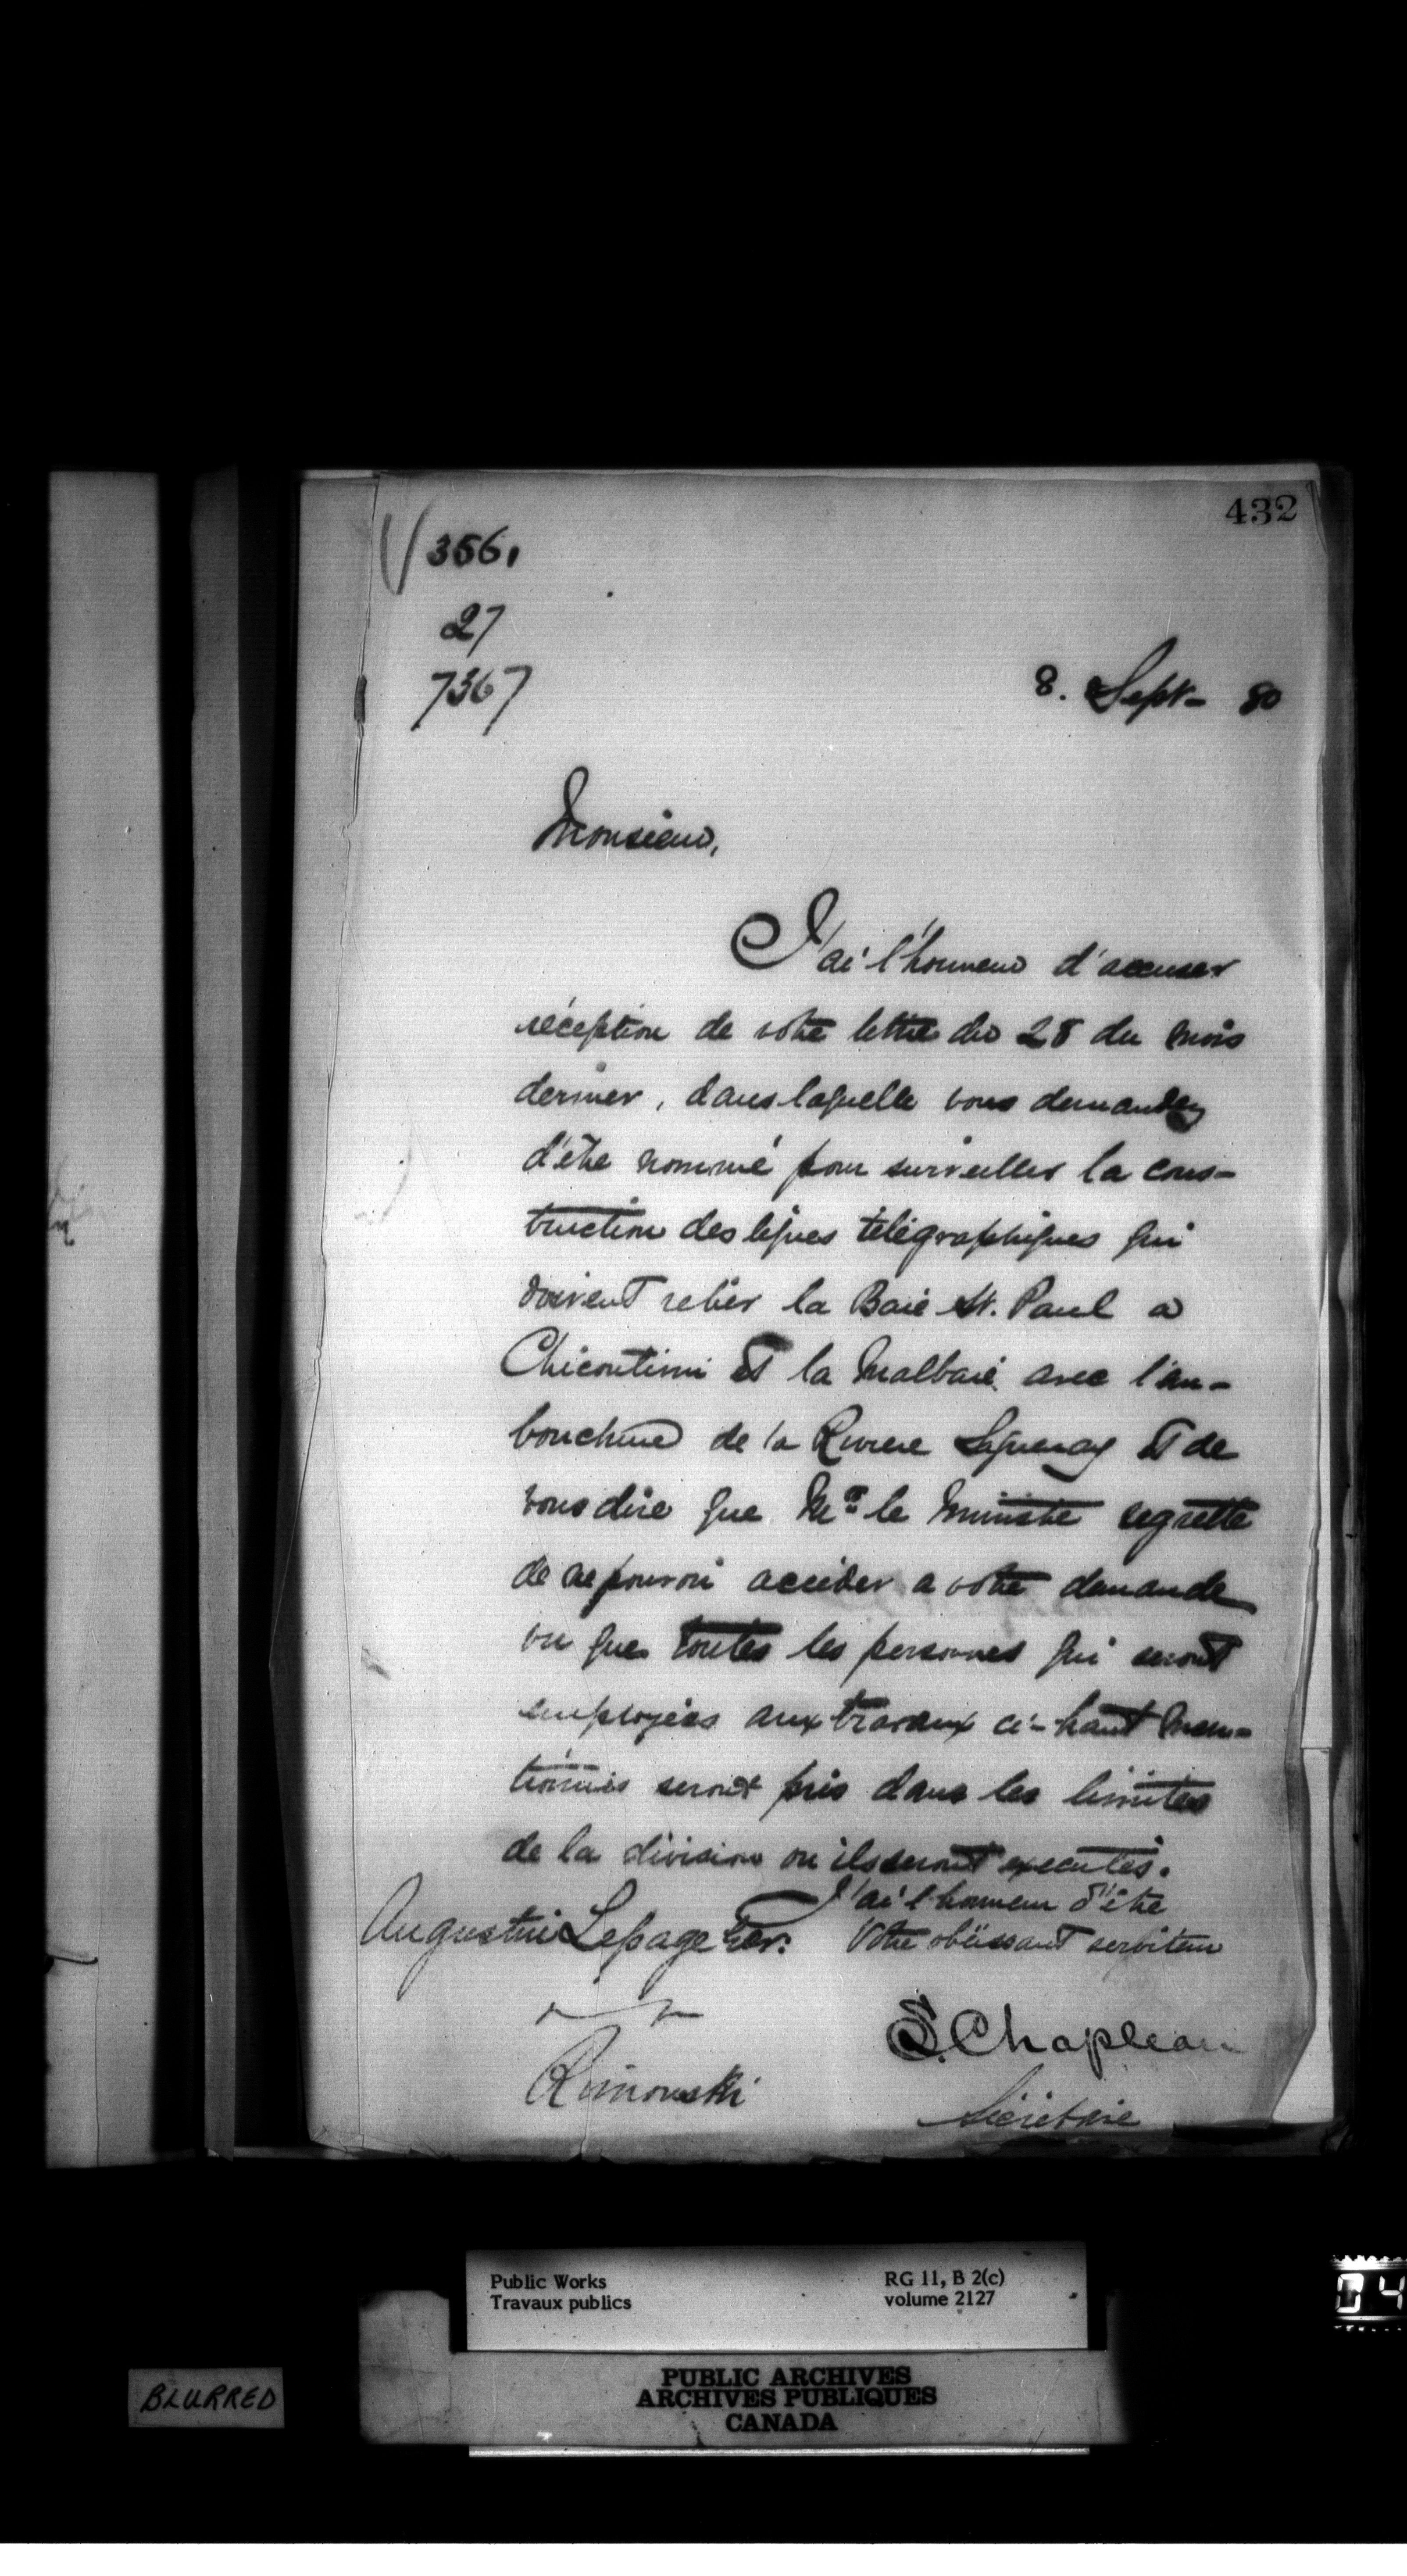 432
356,
27
7367
8. Sept- 80
Monsieur,
J'ai l'honneur d'accuser
réception de votre lettre du 28 du mois
dernier, dans laquelle vous demandez
d'être nommé pour surveiller la cons-
truction des lignes télégraphiques qui
doivent relier la Baie St. Paul a
Chicoutimi et la Malbaie avec l'em-
bouchure de la Riviere Saguenay et de
vous dire que Mr le Ministre regrette
de ne pouvoir accéder a votre demande
vu que toutes les personnes qui seront
employées aux travaux ci-haut men-
tionnés seront pris dans les limites
de la division ou ils seront executés.
J'ai l'honneur d'être
Votre obéissant serviteur
Augustin Lepage Ecr.
S. Chapleau
Rimouski
Secrétaire
Public Works
Travaux publics
RG 11, B 2(c)
volume 2127
04
BLURRED
PUBLIC ARCHIVES
ARCHIVES PUBLIQUES
CANADA